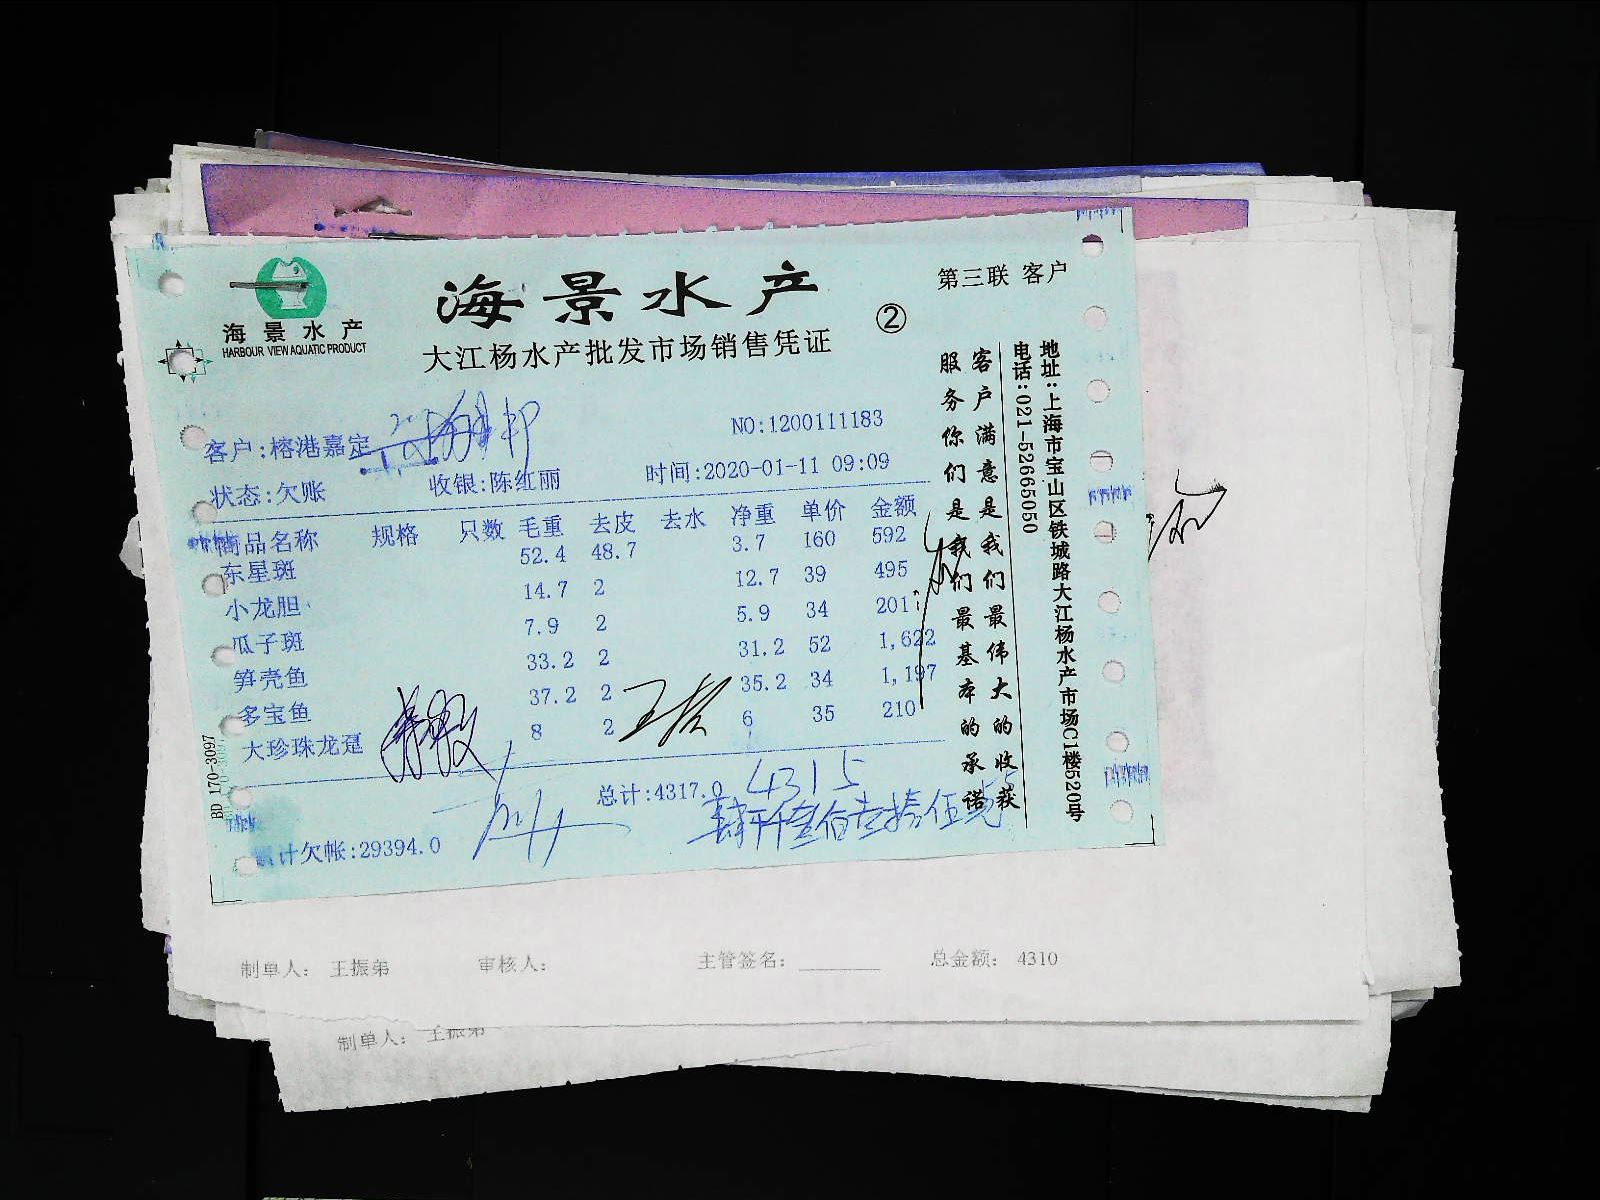 海景水产
HARBOUR VIEW AQUATIC PRODUCT
海景水产
大江杨水产批发市场销售凭证
②
第三联 客户
客户:榕港嘉定
NO:1200111183
状态:欠账 收银:陈红丽 时间:2020-01-11 09:09
商品名称 规格 只数 毛重 去皮 去水 净重 单价 金额
东星斑 52.4 48.7 3.7 160 592
小龙胆 14.7 2 12.7 39 495
瓜子斑 7.9 2 5.9 34 201
笋壳鱼 33.2 2 31.2 52 1,622
多宝鱼 37.2 2 35.2 34 1,197
大珍珠龙趸 8 2 6 35 210
总计:4317.0 4315
肆仟叁佰壹拾伍元
累计欠帐:29394.0
客户满意是我们最伟大的收获
服务你们是我们最基本的承诺
地址:上海市宝山区铁城路大江杨水产市场C1楼520号
电话:021-52665050
BD 170-3097
制单人: 王振弟 审核人: 主管签名: 总金额: 4310
制单人: 王振弟